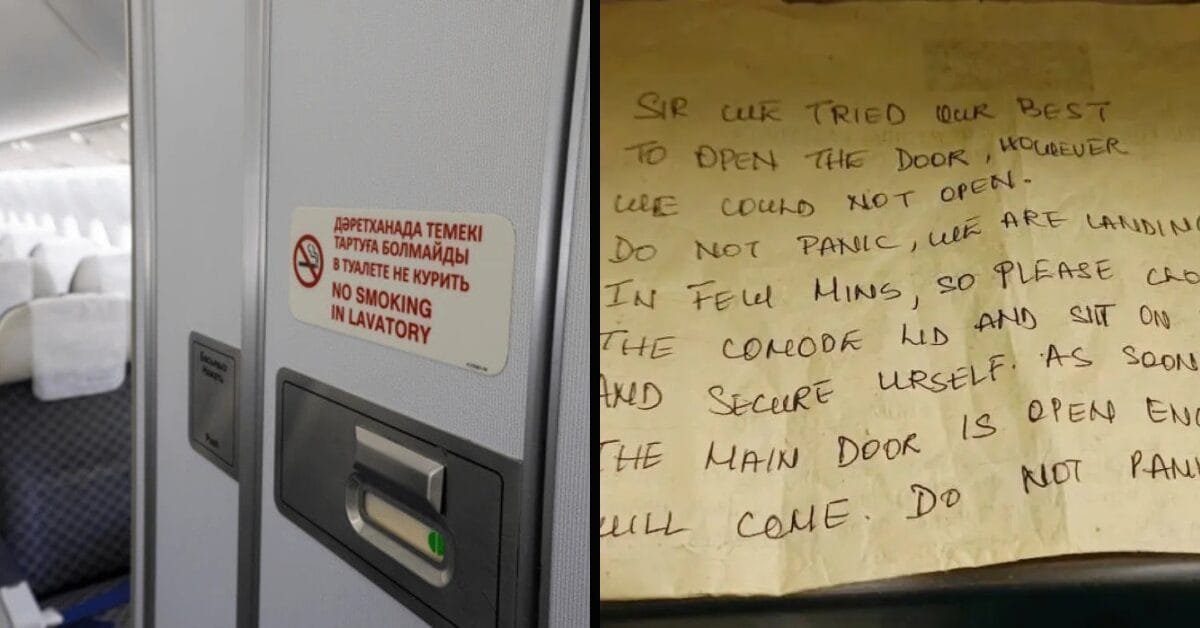 ДӘРЕТХАНАДА ТЕМЕКІ
ТАРТУҒА БОЛМАЙДЫ
В ТУАЛЕТЕ НЕ КУРИТЬ
NO SMOKING
IN LAVATORY
Push
SIR WE TRIED OUR BEST
TO OPEN THE DOOR, HOWEVER
WE COULD NOT OPEN.
DO NOT PANIC, WE ARE LANDING
IN FEW MINS, SO PLEASE CLO
THE COMODE LID AND SIT ON
AND SECURE URSELF. AS SOON
THE MAIN DOOR IS OPEN ENG
WILL COME. DO NOT PANI